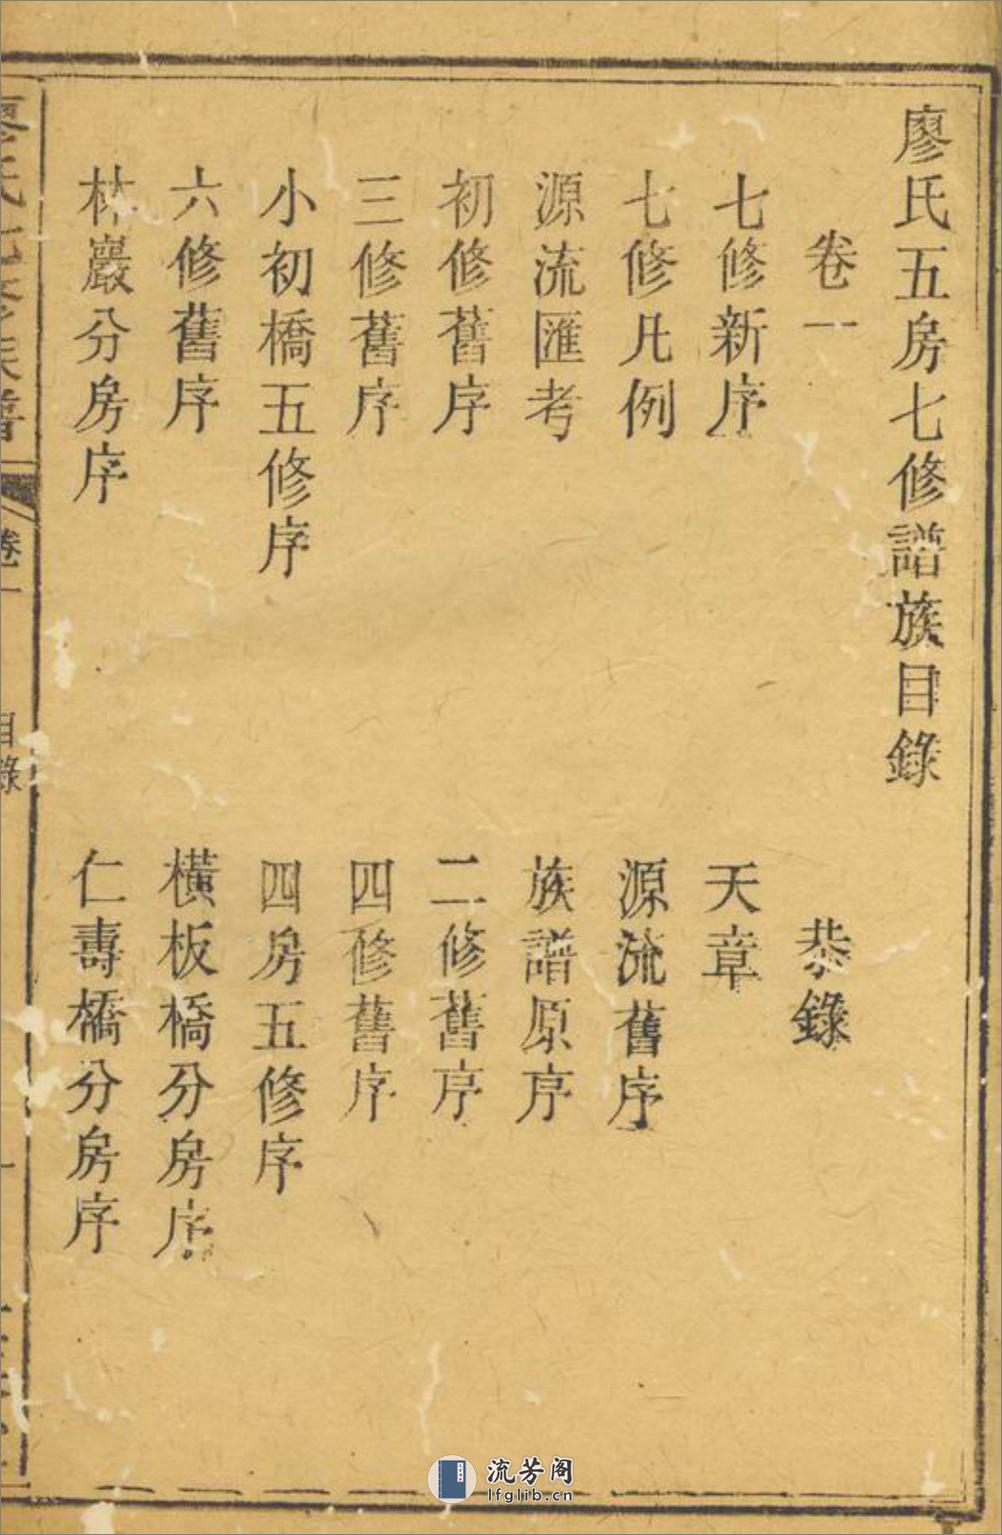 廖氏五房七修譜族目錄
卷一 恭錄
七修新序 天章
七修凡例 源流舊序
源流匯考 族譜原序
初修舊序 二修舊序
三修舊序 四修舊序
小初橋五修序 四房五修序
六修舊序 橫板橋分房序
林巖分房序 仁壽橋分房序
卷一 目錄
流芳阁
lfglib.cn